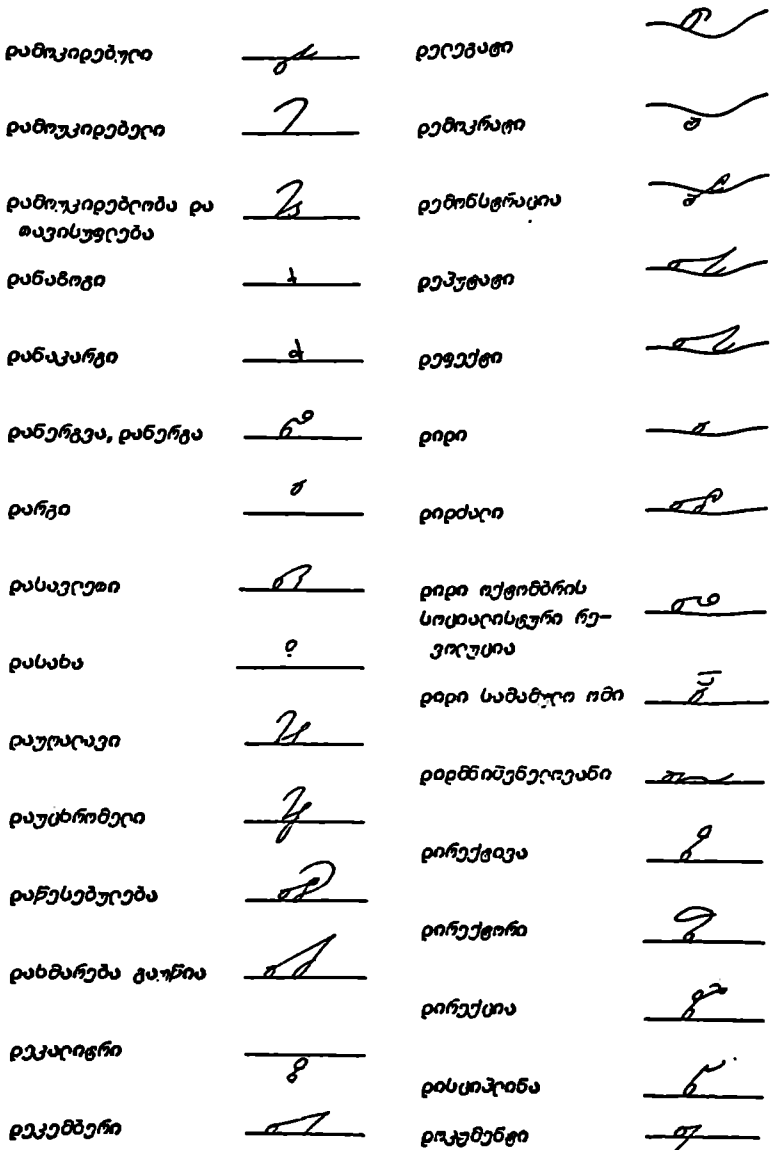 დამოკიდებული
დამოუკიდებელი
დამოუკიდებლობა და
თავისუფლება
დანაზოგი
დანაკარგი
დანერგვა, დანერგა
დარგი
დასავლეთი
დასახა
დაუღალავი
დაუცხრომელი
დაწესებულება
დახმარება გაუწია
დეკალიტრი
დეკემბერი
დელეგატი
დემოკრატი
დემონსტრაცია
დეპუტატი
დეფექტი
დიდი
დიდძალი
დიდი ოქტომბრის
სოციალისტური რე-
ვოლუცია
დიდი სამამულო ომი
დიდმნიშვნელოვანი
დირექტივა
დირექტორი
დირექცია
დისციპლინა
დოკუმენტი